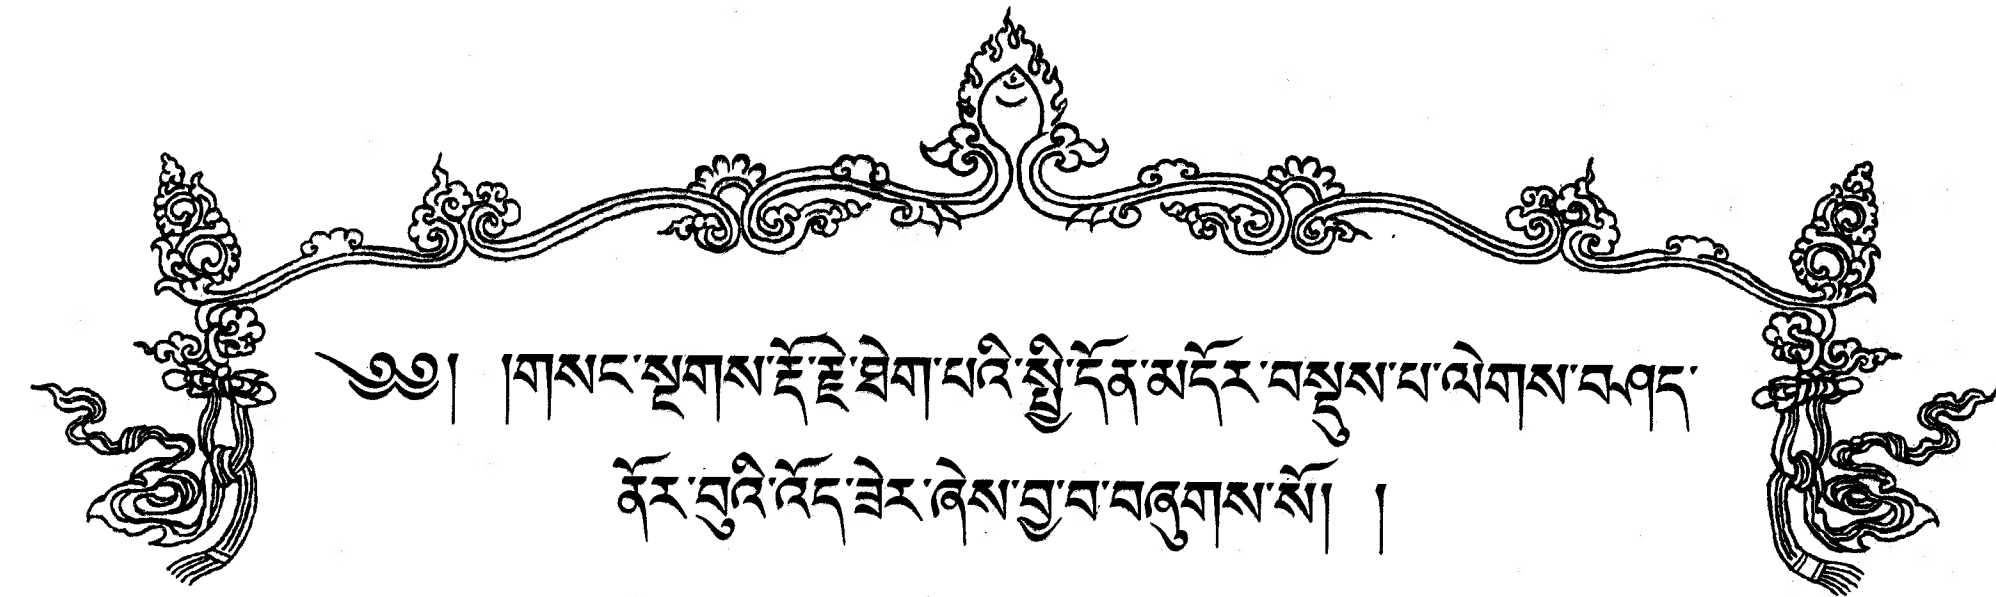 ༄༅། །གསང་སྔགས་རྡོ་རྗེ་ཐེག་པའི་སྤྱི་དོན་མདོར་བསྡུས་པ་ལེགས་བཤད་
ནོར་བུའི་འོད་ཟེར་ཞེས་བྱ་བ་བཞུགས་སོ། །